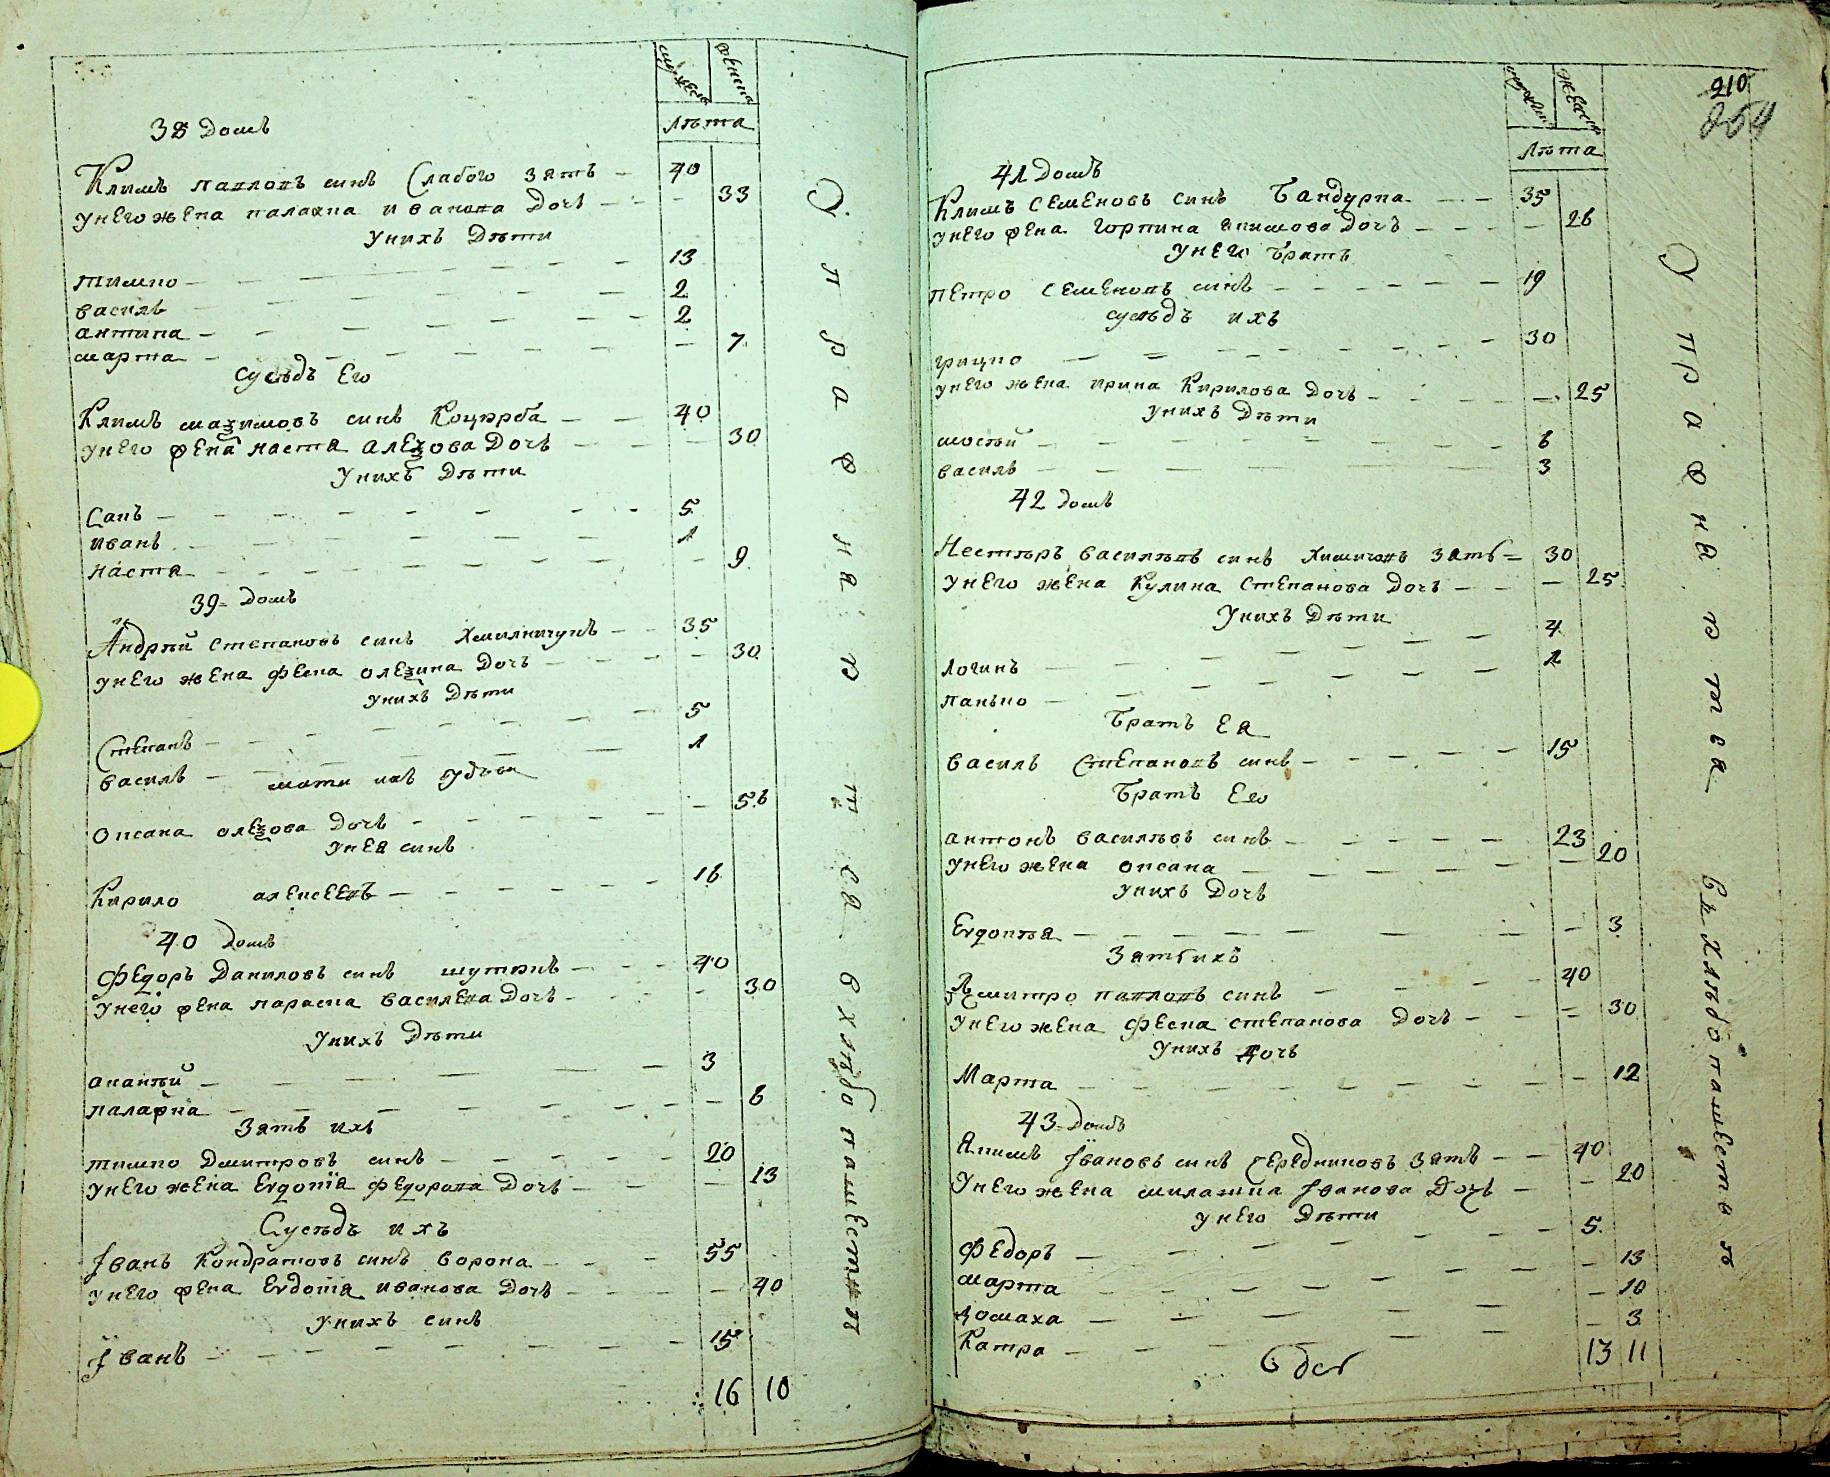 мужеска женска
лѣта
38 Домъ
Климъ павловъ синъ Слабого зятъ 40
унего жена палажка иванова Дочъ 33
унихъ Дѣти
тимко 13
василь 2
антипа 2
марта 7
сусѣдъ его
Климъ маѯимовъ синъ 40
унего жена наста алеѯова Дочъ 30
унихъ Дѣти
Сакъ 5
иванъ 1
наста 9
39 Домъ
Андрѣй степановъ синъ Хмилничукъ 35
унего жена феска олеѯина Дочъ 30
унихъ Дѣти
Степанъ 5
василь 1
мати ихъ удова
оксана олеѯова Дочъ 56
унея синъ
Кирило алексеевъ 16
40 Домъ
Федоръ Даниловъ синъ 40
унего жена параска василева Дочъ 30
унихъ Дѣти
ананѣй 3
палажка 6
Зятъ ихъ
тимко Дмитровъ синъ 20
унего жена Евдокїя федорова Дочъ 13
Сусѣдъ ихъ
Іванъ Кондратовъ синъ ворона 55
унего жена Евдокїя иванова Дочъ 40
унихъ синъ
Іванъ 15
16 10
У правжняются вхлѣбопашествѣ
210
264
мужеска женска
лѣта
41 Домъ
Климъ семеновъ синъ Бандурка 35
унего жена горпина якимова Дочъ 26
унего братъ
петро семеновъ синъ 19
сусѣдъ ихъ
грицко 30
унего жена ирина Кирилова Дочъ 25
унихъ Дѣти
мосѣй 6
василь 3
42 домъ
Нестѣръ василѣвъ синъ зятъ 30
унего жена Кулина степанова Дочъ 25
унихъ Дѣти
логинъ 4
панько 1
Братъ Ея
василь Степановъ синъ 15
Братъ Его
антонъ василѣвъ синъ 23
унего жена оксана 20
унихъ Дочъ
Евдокѣя 3
Зятъ ихъ
Дмитро павловъ синъ 40
унего жена феска степанова Дочъ 30
унихъ Дочъ
Марта 12
43 Домъ
Якимъ Івановъ синъ Середниковъ Зятъ 40
Унего жена милашка Іванова Дочъ 20
унего Дѣти
Федоръ 5
марта 13
домаха 10
Катра 3
13 11
У пражняются вхлѣбопашествѣ